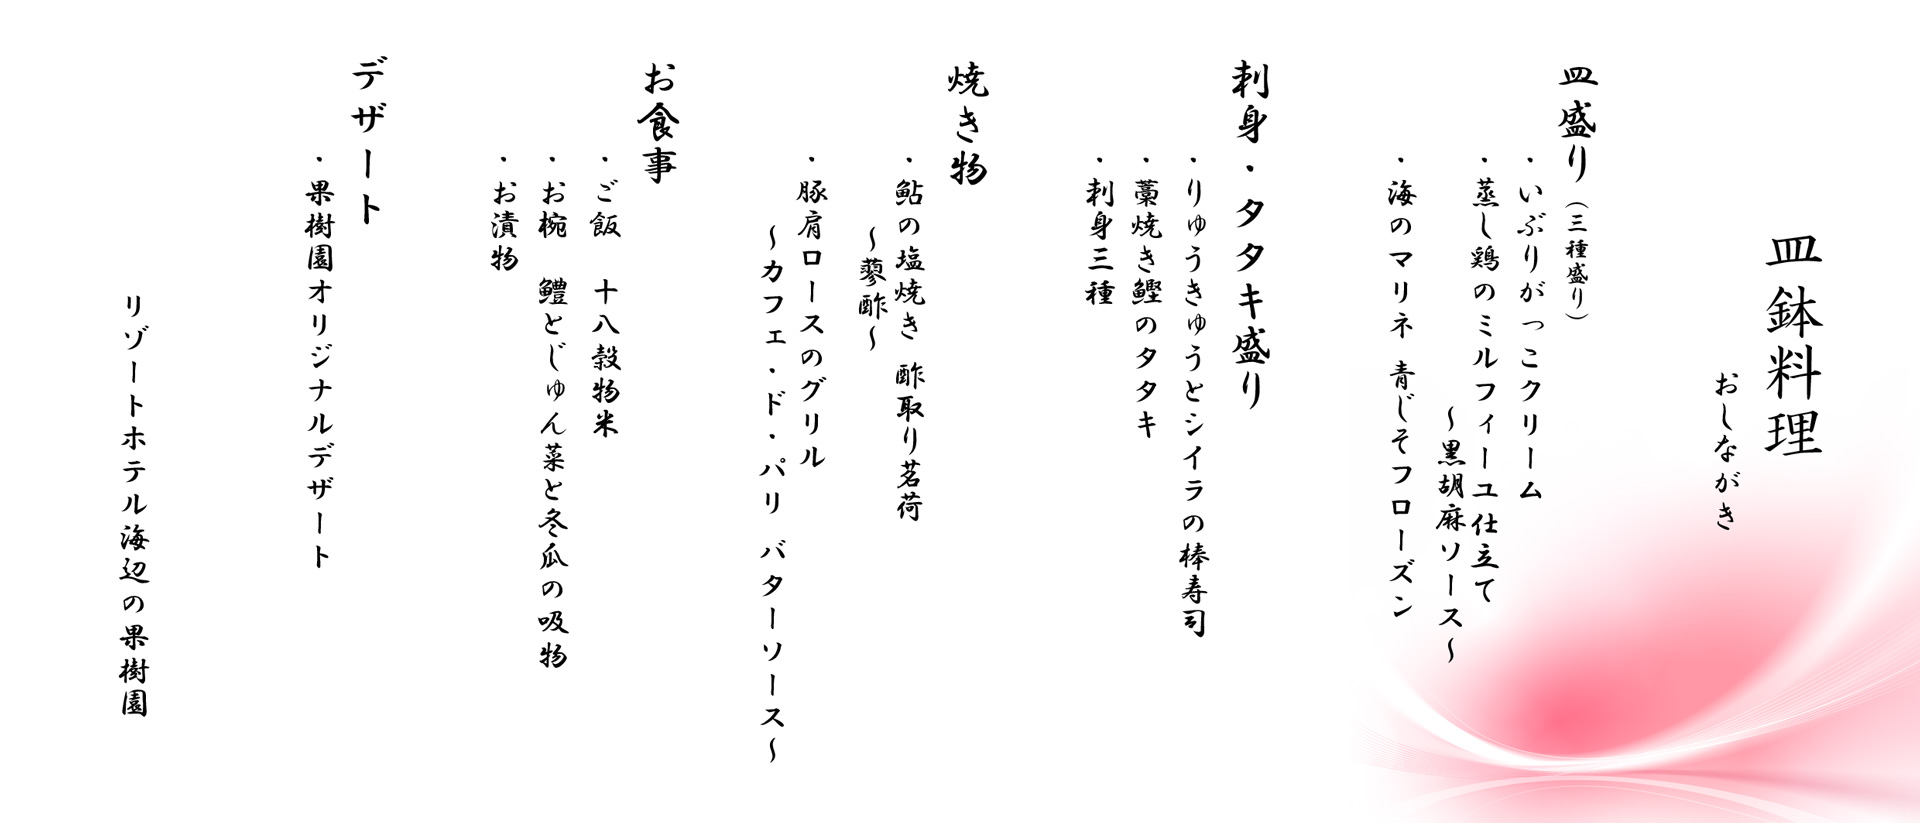 皿鉢料理
おしながき
皿盛り（三種盛り）
・いぶりがっこクリーム
・蒸し鶏のミルフィーユ仕立て
～黒胡麻ソース～
・海のマリネ 青じそフローズン
刺身・タタキ盛り
・りゅうきゅうとシイラの棒寿司
・藁焼き鰹のタタキ
・刺身三種
焼き物
・鮎の塩焼き 酢取り茗荷
～蓼酢～
・豚肩ロースのグリル
～カフェ・ド・パリ バターソース～
お食事
・ご飯　十八穀物米
・お椀　鱧とじゅん菜と冬瓜の吸物
・お漬物
デザート
・果樹園オリジナルデザート
リゾートホテル海辺の果樹園